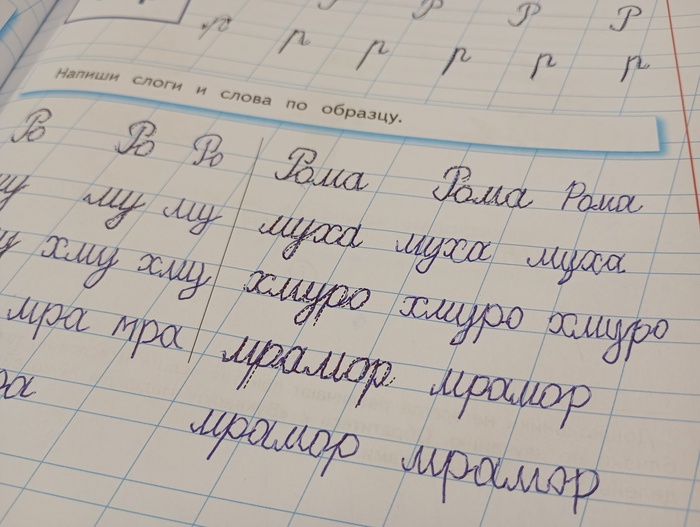 Р Р Р
р р р р р р
Напиши слоги и слова по образцу.
Ро Ро Ро Рома Рома Рома
му му му муха муха муха
хму хму хмуро хмуро хмуро
мра мра мрамор мрамор
мрамор мрамор